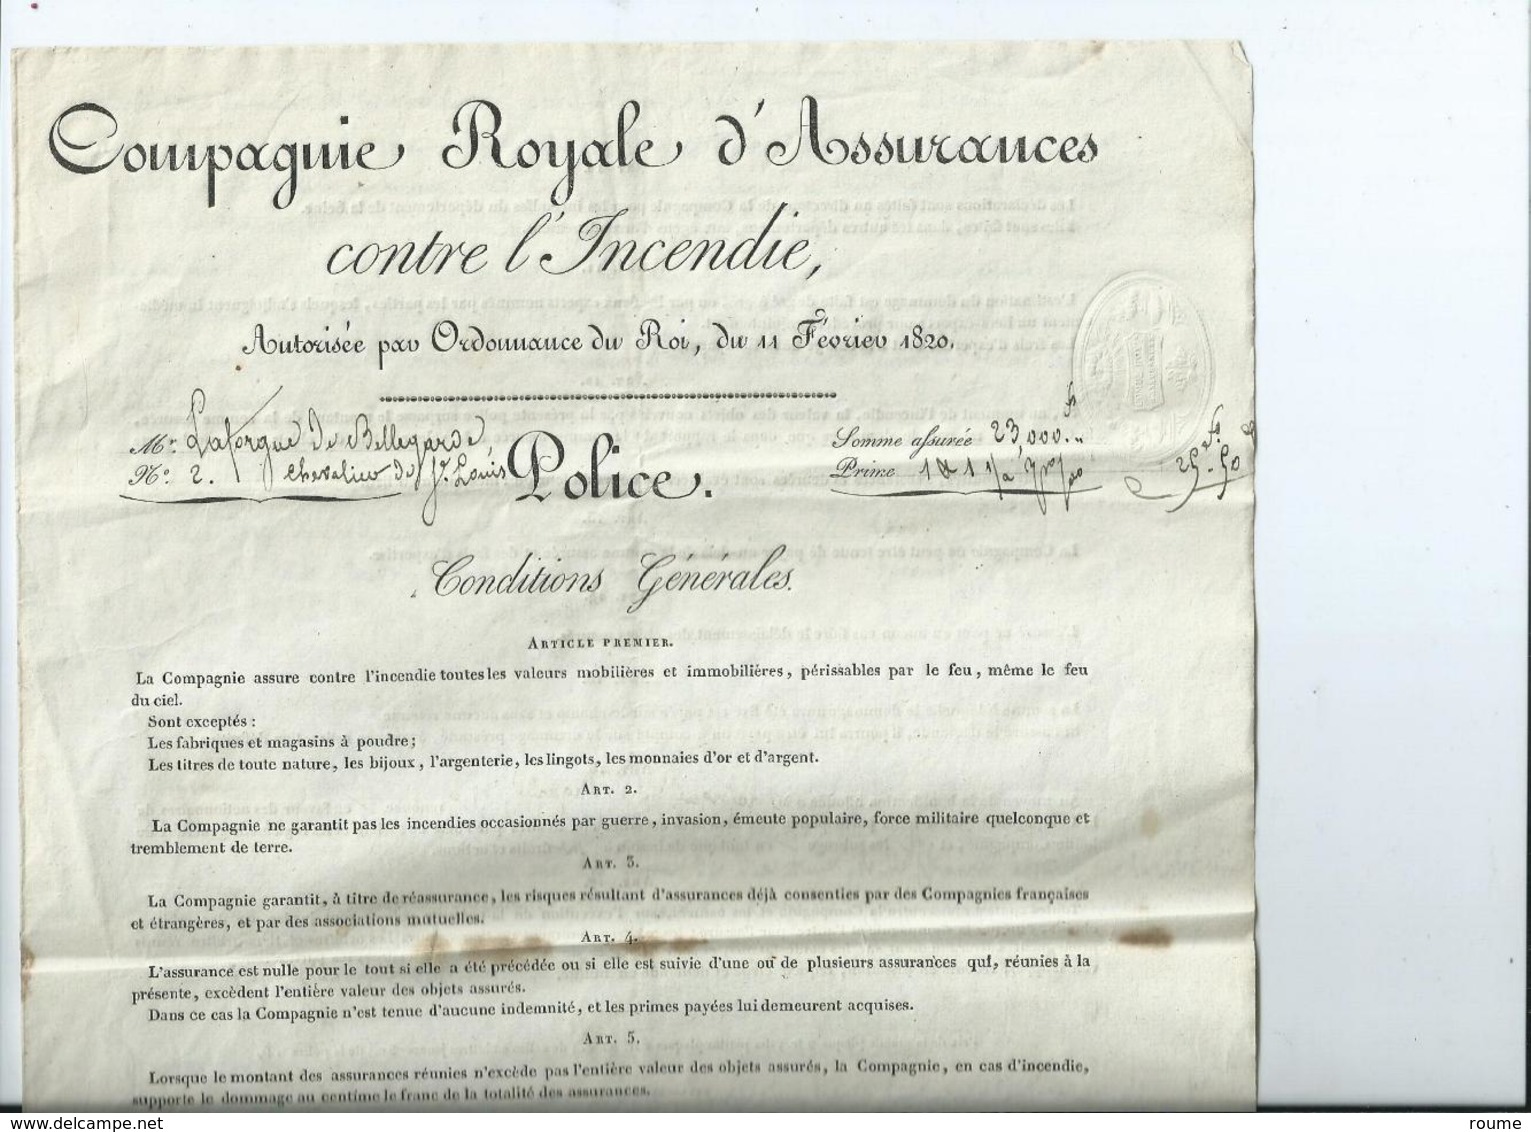 Compagnie Royale d'Assurances
contre l'Incendie,
Autorisée par Ordonnance du Roi, du 11 Février 1820.
Mr. Laforgue de Bellegarde
No. 2. chevalier de St. Louis
Police.
Somme assurée 23,000.
Prime 25.50
Conditions Générales.
ARTICLE PREMIER.
La Compagnie assure contre l'incendie toutes les valeurs mobilières et immobilières, périssables par le feu, même le feu
du ciel.
Sont exceptés :
Les fabriques et magasins à poudre ;
Les titres de toute nature, les bijoux, l'argenterie, les lingots, les monnaies d'or et d'argent.
ART. 2.
La Compagnie ne garantit pas les incendies occasionnés par guerre, invasion, émeute populaire, force militaire quelconque et
tremblement de terre.
ART. 3.
La Compagnie garantit, à titre de réassurance, les risques résultant d'assurances déjà consenties par des Compagnies françaises
et étrangères, et par des associations mutuelles.
ART. 4.
L'assurance est nulle pour le tout si elle a été précédée ou si elle est suivie d'une ou de plusieurs assurances qui, réunies à la
présente, excèdent l'entière valeur des objets assurés.
Dans ce cas la Compagnie n'est tenue d'aucune indemnité, et les primes payées lui demeurent acquises.
ART. 5.
Lorsque le montant des assurances réunies n'excède pas l'entière valeur des objets assurés, la Compagnie, en cas d'incendie,
supporte le dommage au centime le franc de la totalité des assurances.
www.delcampe.net
roume